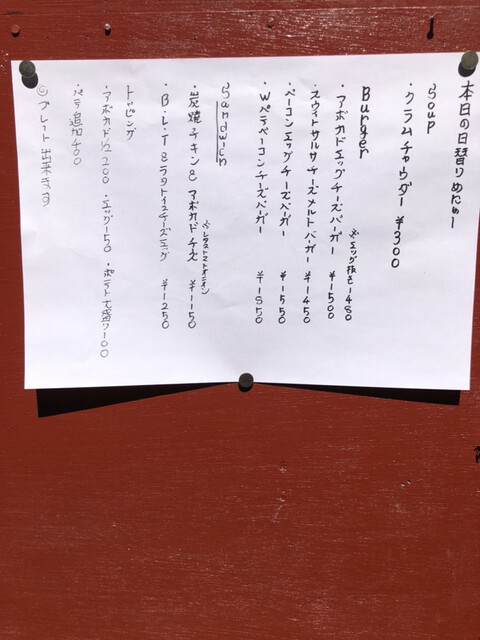 本日の日替りめにゅー
Soup
・クラムチャウダー ¥300
Burger
・アボカドエッグチーズバーガー ¥1500
※エッグ抜き1480
・スウィートサルサチーズメルトバーガー ¥1450
・ベーコンエッグチーズバーガー ¥1550
・Wパティベーコンチーズバーガー ¥1850
Sandwich
※レタストマトオニオン
・炭焼チキン&アボカドチーズ ¥1150
・B・L・T&ラタトゥイユチーズエッグ ¥1250
トッピング
・アボカド1/2 200 ・エッグ150 ・ポテト大盛り100
・パティ追加400
◎プレート出来ます